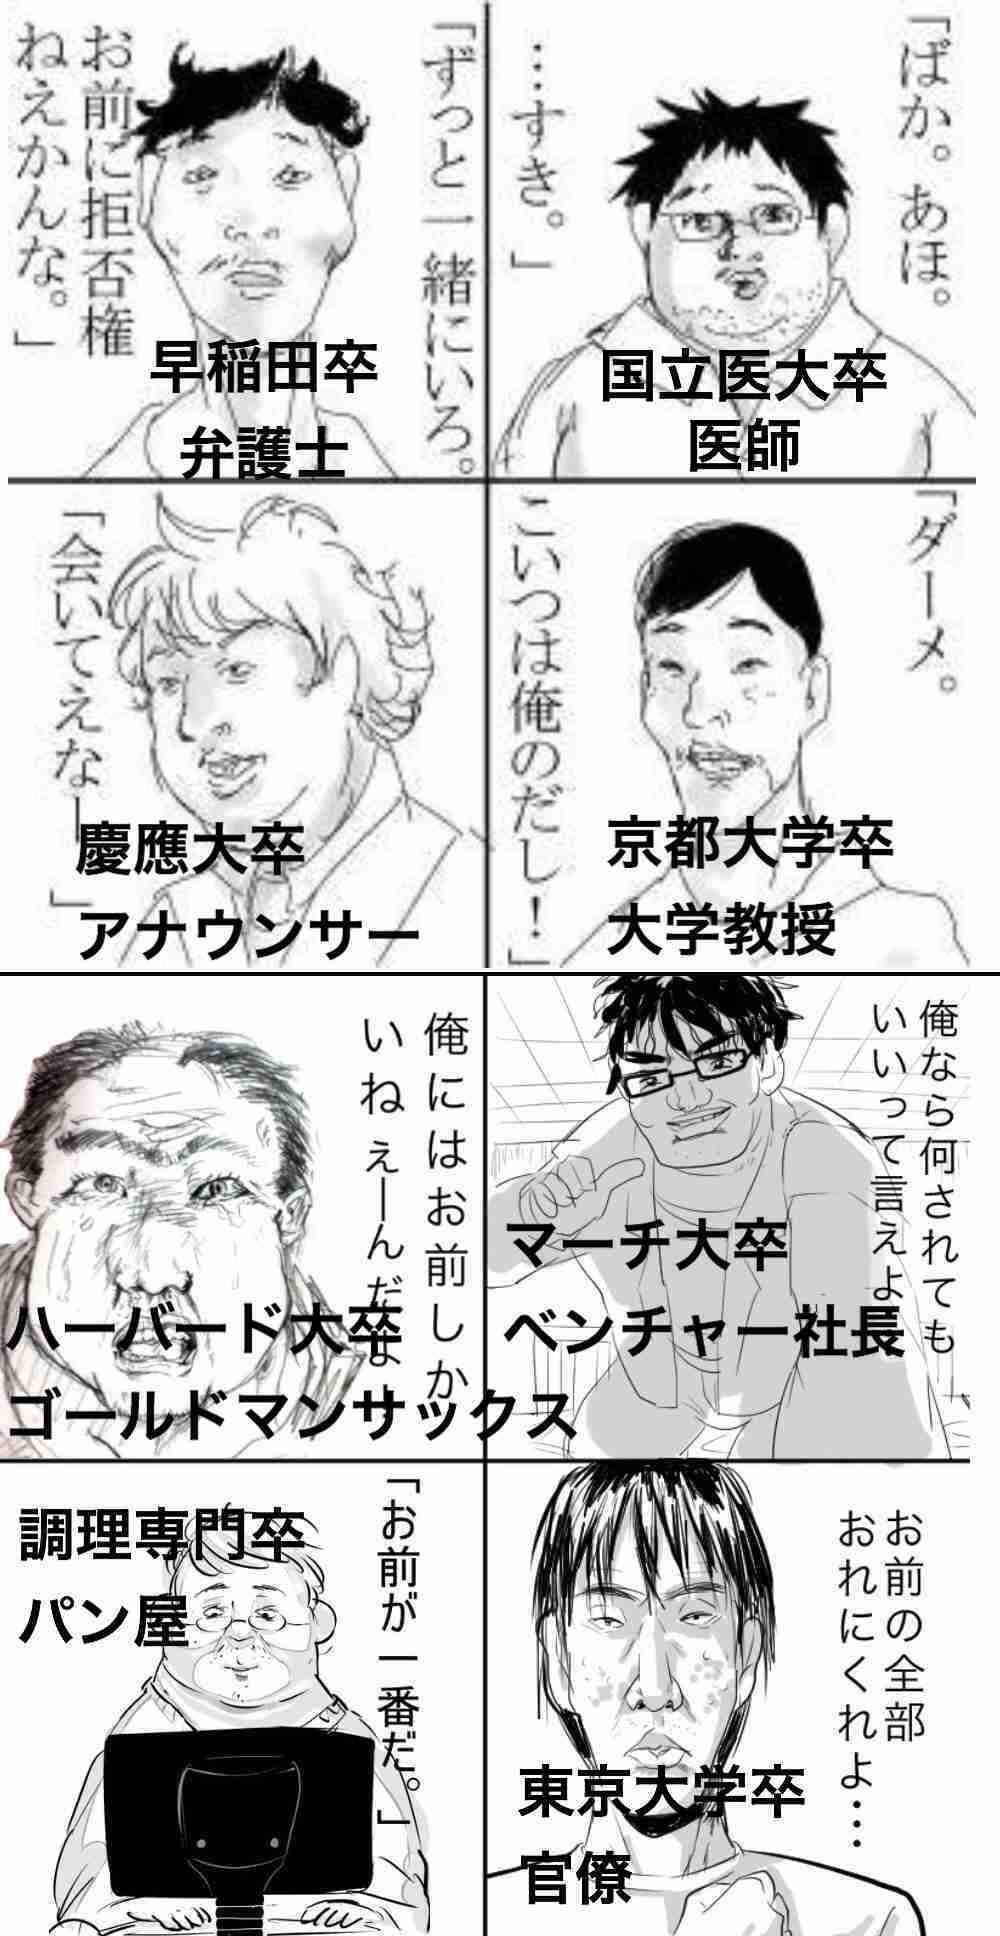 「ばか。あほ。
…すき。」
国立医大卒
医師
「ずっと一緒にいろ。
お前に拒否権
ねえかんな。」
早稲田卒
弁護士
「ダーメ。
こいつは俺のだし！」
京都大学卒
大学教授
「会いてえなー」
慶應大卒
アナウンサー
俺なら何されても
いいって言えよ
マーチ大卒
ベンチャー社長
俺にはお前しか
いねぇーんだよ
ハーバード大卒
ゴールドマンサックス
お前の全部
おれにくれよ…
東京大学卒
官僚
「お前が一番だ。」
調理専門卒
パン屋